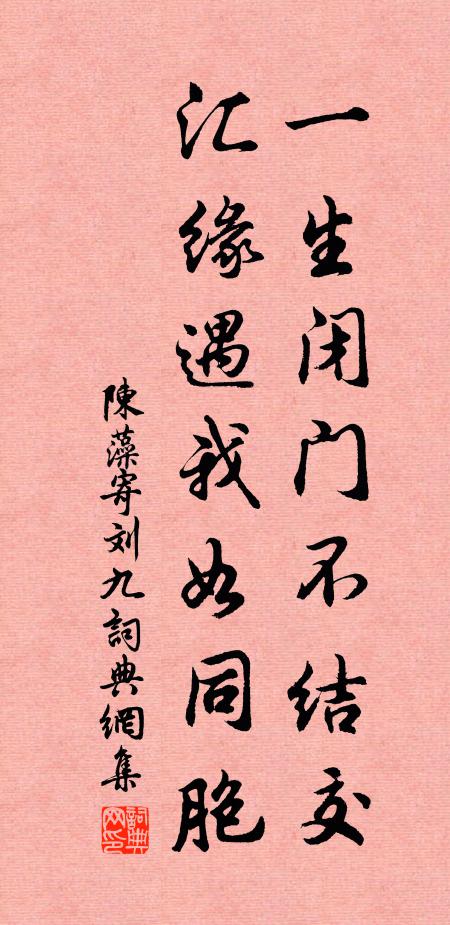 一生闭门不结交
汇缘遇我如同胞
陳藻寄刘九詞典網集
詞典网印